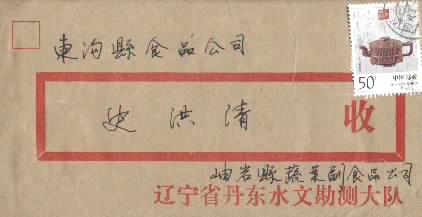 東沟縣食品公司
50分
中国邮政
史洪清
收
岫岩縣蔬菜副食品公司
辽宁省丹东水文勘测大队